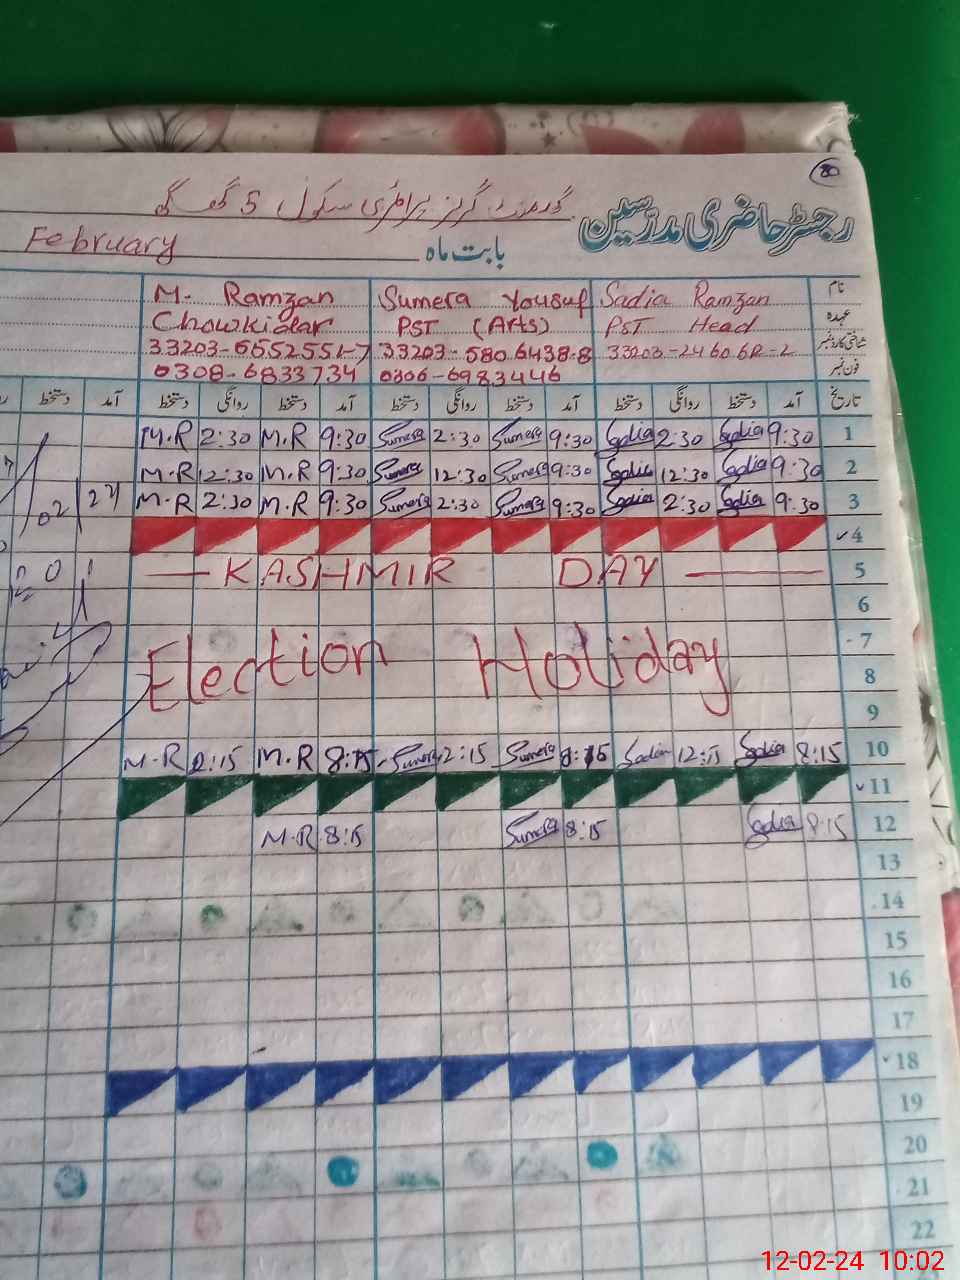 80
رجسٹر حاضری مدرسین
گورنمنٹ گرلز پرائمری سکول 5
بابت ماہ February
نام Sadia Ramzan Sumera Yousuf M. Ramzan
عہدہ PST Head PST (Arts) Chowkidar
شناختی کارڈ نمبر 33203-5806438-8 33203-6552551-7
فون نمبر 0306-6983446 0308-6833734
تاریخ آمد دستخط روانگی دستخط آمد دستخط روانگی دستخط آمد دستخط روانگی دستخط آمد دستخط
1 9:30 Sadia 2:30 Sadia 9:30 Sumera 2:30 Sumera 9:30 M.R 2:30 M.R
2 9:30 Sadia 12:30 Sadia 9:30 Sumera 12:30 Sumera 9:30 M.R 12:30 M.R
3 9:30 Sadia 2:30 Sadia 9:30 Sumera 2:30 Sumera 9:30 M.R 2:30 M.R
4
5 KASHMIR DAY
6
7
8 Election Holiday
9
10 8:15 Sadia 12:15 Sadia 8:15 Sumera 2:15 Sumera 8:15 M.R 2:15 M.R
11
12 8:15 Sadia 8:15 Sumera 8:15 M.R
13
14
15
16
17
18
19
20
21
22
12-02-24 10:02